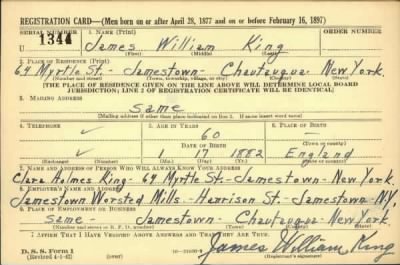 REGISTRATION CARD—(Men born on or after April 28, 1877 and on or before February 16, 1897)
SERIAL NUMBER 1. NAME (Print)
1344 James William King
(First) (Middle) (Last)
2. PLACE OF RESIDENCE (Print)
64 Myrtle St. - Jamestown - Chautauqua - New York.
(Number and street) (Town, township, village, or city) (County) (State)
[THE PLACE OF RESIDENCE GIVEN ON THE LINE ABOVE WILL DETERMINE LOCAL BOARD
JURISDICTION; LINE 2 OF REGISTRATION CERTIFICATE WILL BE IDENTICAL]
3. MAILING ADDRESS
Same
[Mailing address if other than place indicated on line 2. If same insert word same]
4. TELEPHONE 5. AGE IN YEARS 6. PLACE OF BIRTH
60
DATE OF BIRTH
1 17 1882 England
(Exchange) (Number) (Mo.) (Day) (Yr.) (State or country)
7. NAME AND ADDRESS OF PERSON WHO WILL ALWAYS KNOW YOUR ADDRESS
Clara Holmes King - 64 Myrtle St. - Jamestown - New York.
8. EMPLOYER'S NAME AND ADDRESS
Jamestown Worsted Mills - Harrison St. - Jamestown - N.Y.
9. PLACE OF EMPLOYMENT OR BUSINESS
Same - Jamestown - Chautauqua - New York
(Number and street or R. F. D. number) (Town) (County) (State)
I AFFIRM THAT I HAVE VERIFIED ABOVE ANSWERS AND THAT THEY ARE TRUE.
D. S. S. Form 1
(Revised 4-1-42)
James William King
(Registrant's signature)